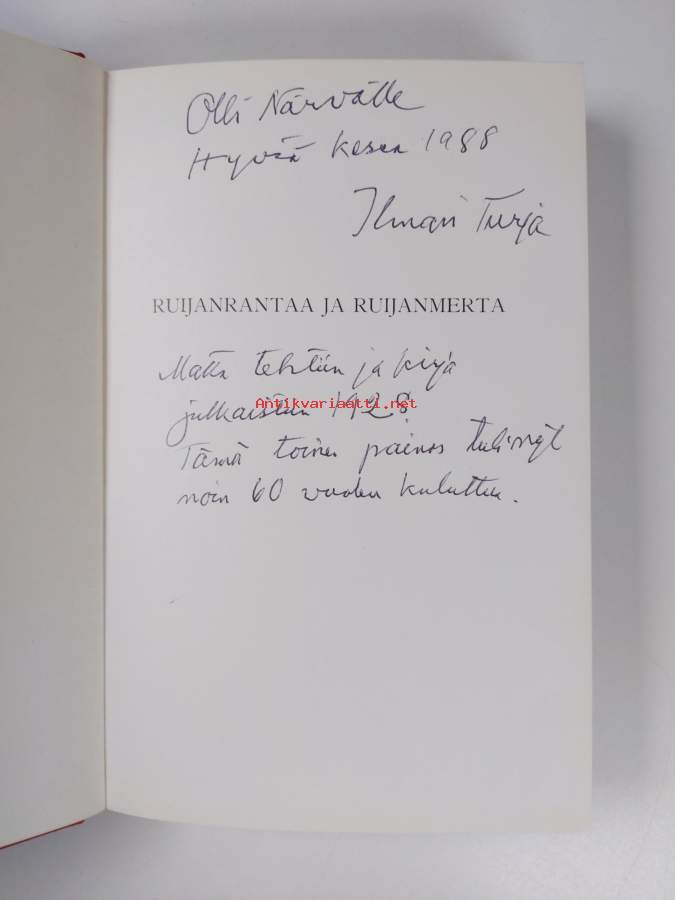 Olli Närvälle
Hyvää kesää 1988
Ilmari Turja
RUIJANRANTAA JA RUIJANMERTA
Matka tehtiin ja kirja
julkaistiin 1928.
Antikvariaatti.net
Tämä toinen painos tuli nyt
noin 60 vuoden kuluttua.